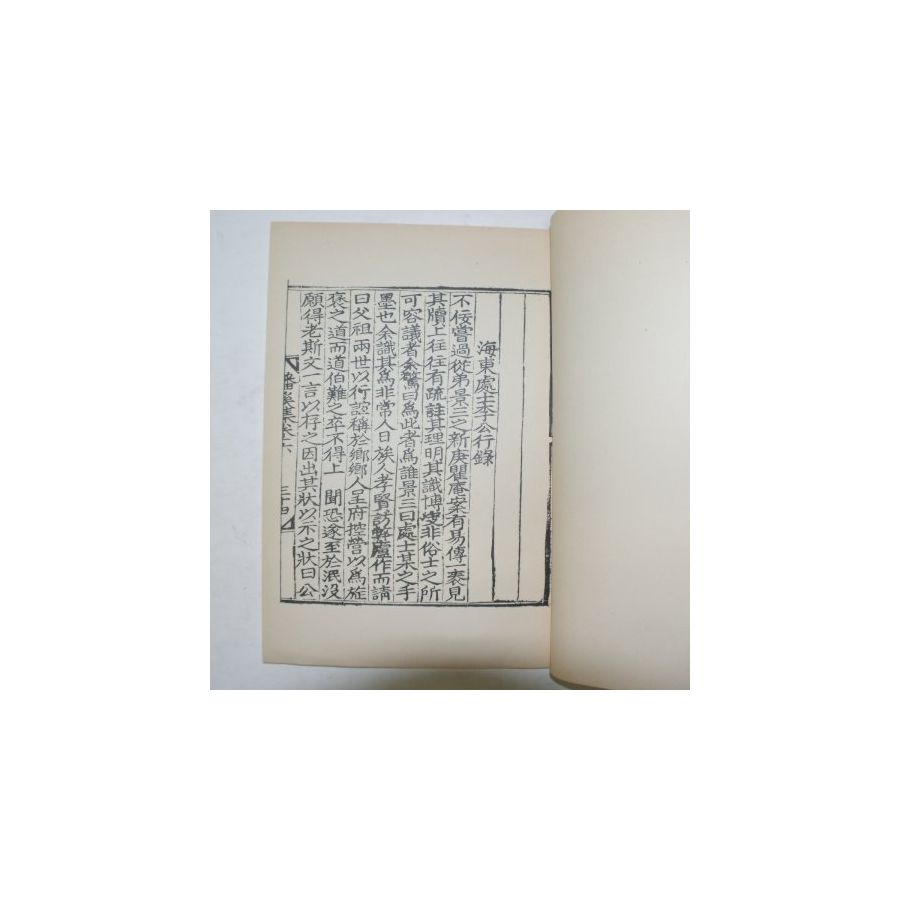 海東處士李公行錄
不佞嘗過從弟景三之新庚瞿庵案有易傳一袠見
其牘上往往有疏註其理明其識博叟非俗士之所
可容議者余驚曰爲此者爲誰景三曰處士某之手
墨也余識其爲非常人日族人孝賢訪靜廬作而請
曰父祖兩世以行誼稱於鄉鄉人呈府控營以爲旌
褒之道而道伯難之卒不得上聞恐遂至於泯沒
願得老斯文一言以存之因出其狀以示之狀曰公
集卷十六
三十四